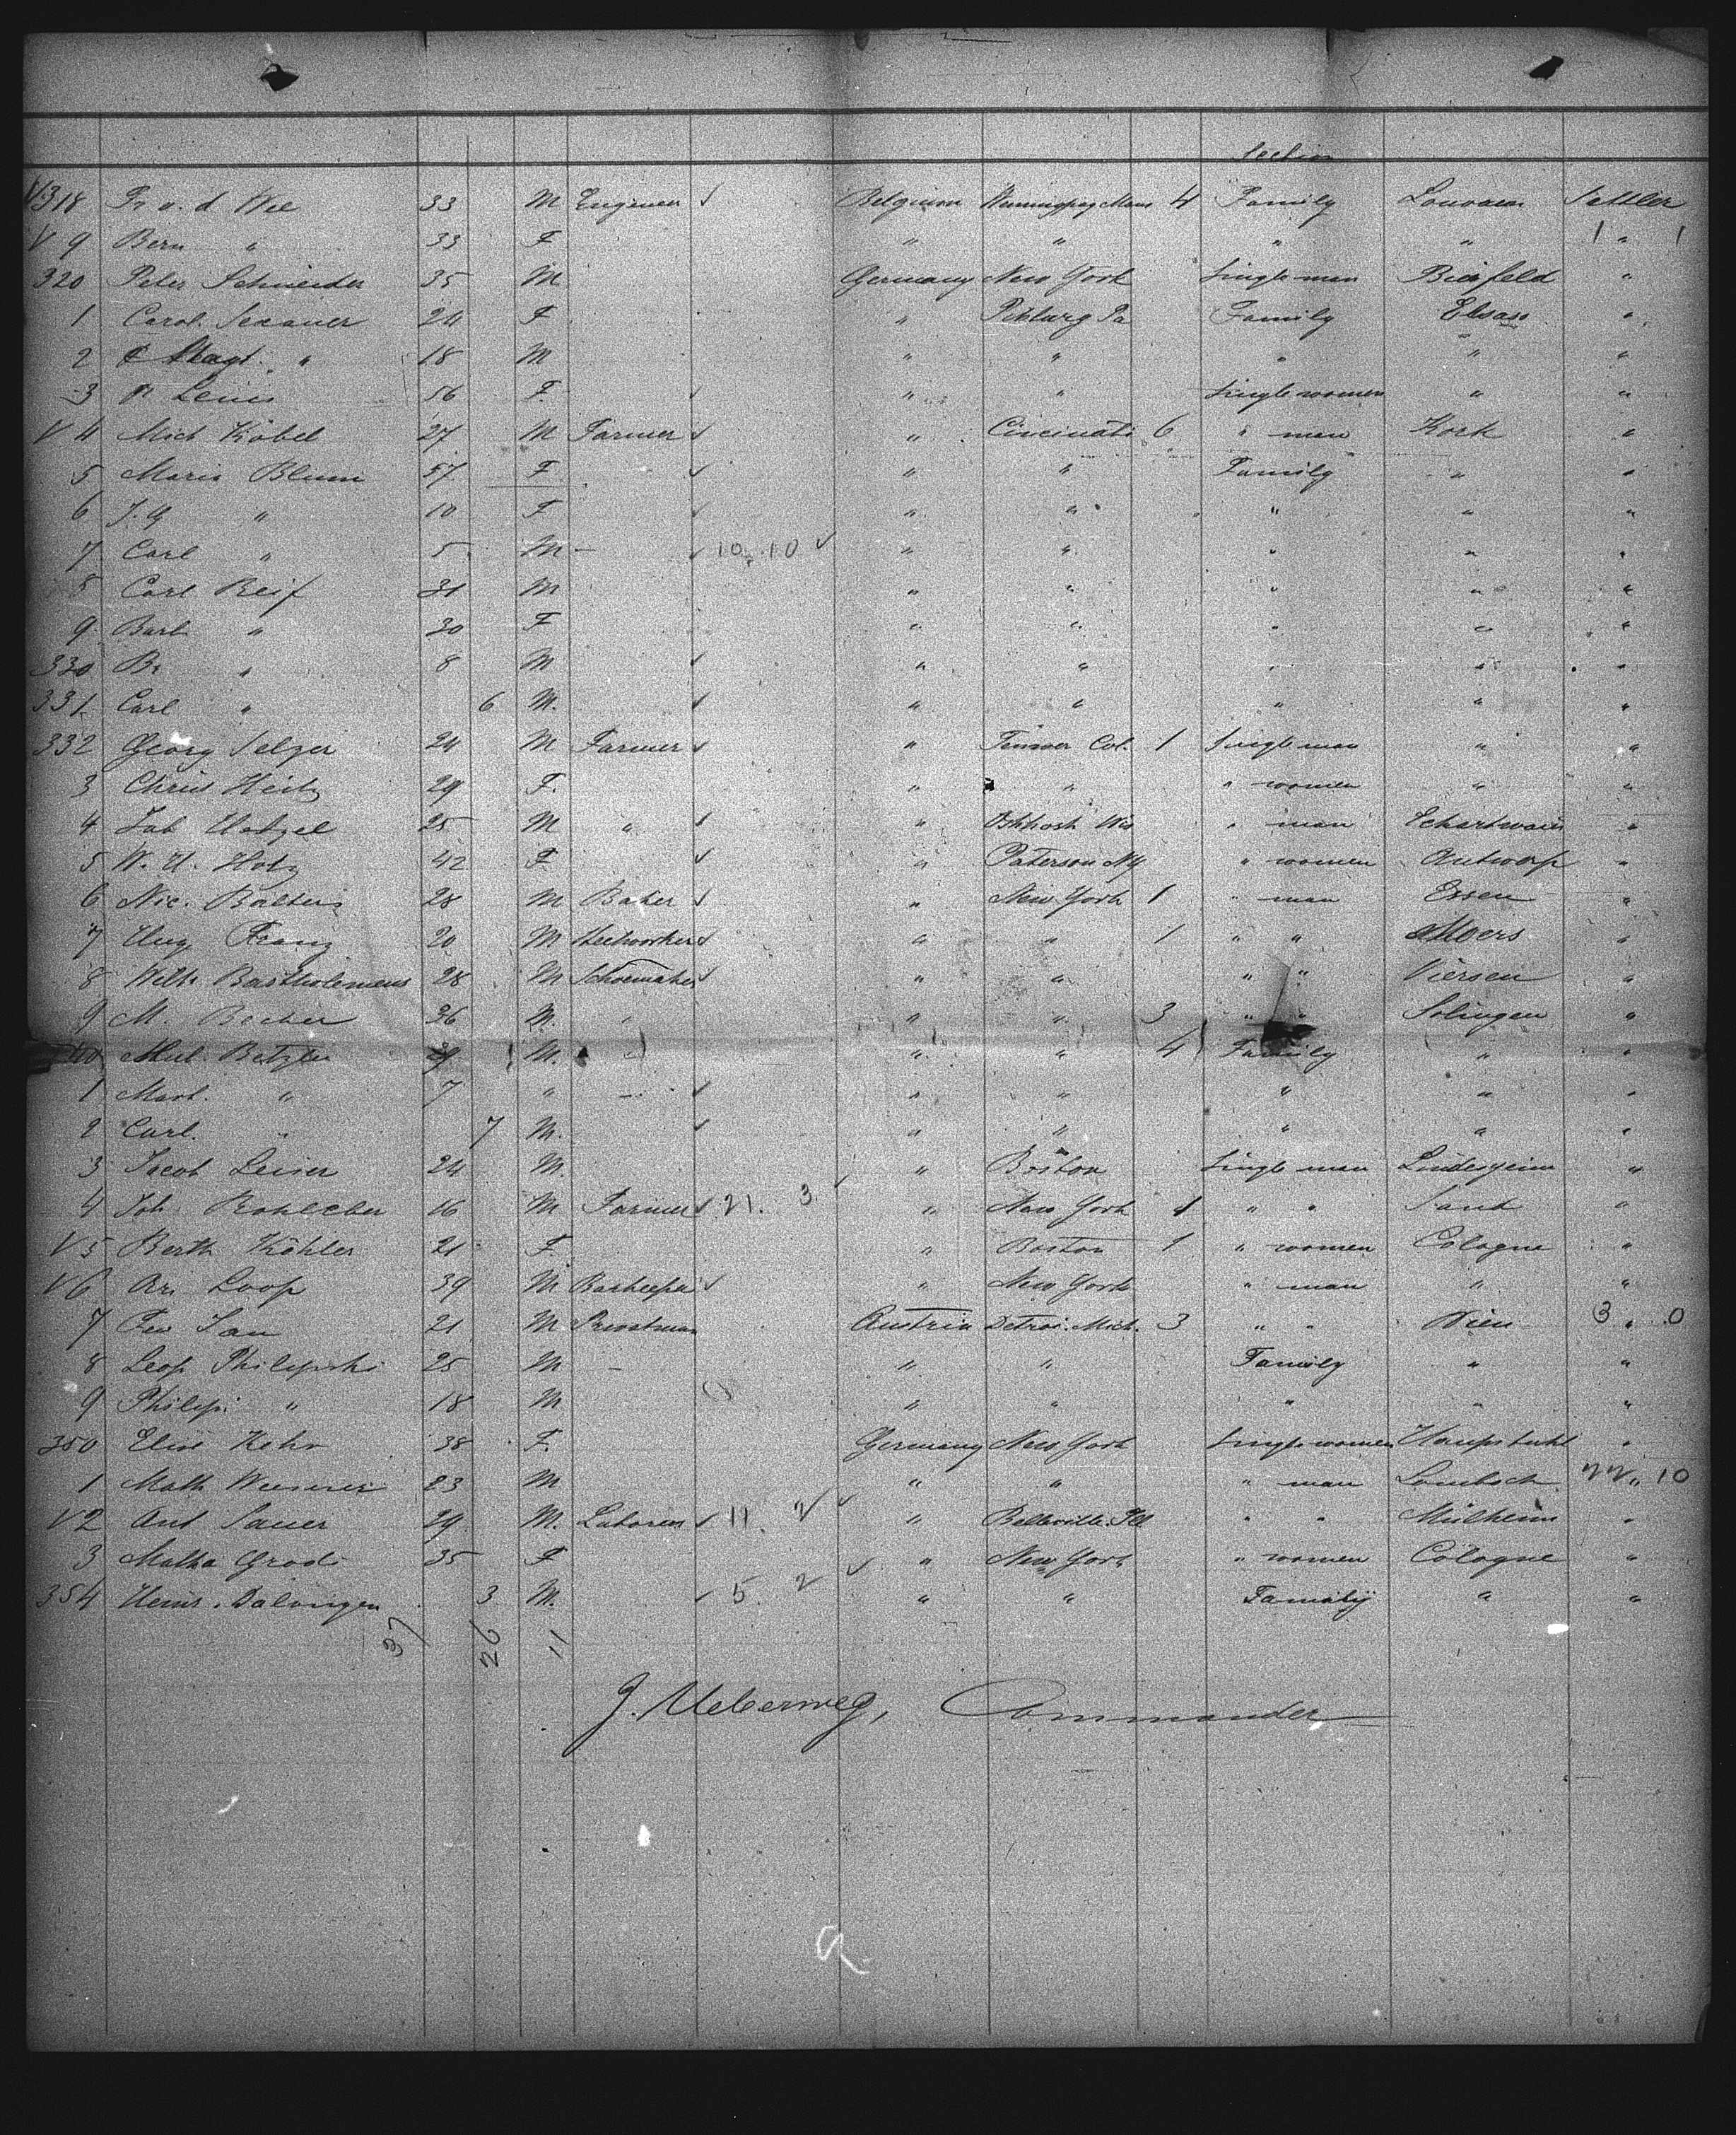 Section
V 318 Fr v. d Wee 33 M Engineer ✓ Belgium 4 Family Louvain Settler
V 9 Bern " 33 F " " " " 1 " 1
320 Peter Schneider 35 M Germany New York Single man "
1 Carol. Sexauer 24 F " Pitburg Pa Family Elsass "
2 Magt. " 18 M " " " " "
3 Lewis 56 F. ✓ " " Single women " "
V 4 Mich Köbel 27 M Farmer ✓ " Cincinati 6 " man Kork "
5 Maria Blum 57 F ✓ " " Family " "
6 J. G " 10 F ✓ " " " " "
7 Carl " 5 M – ✓ 10 . 10 ✓ " " " " "
8 Carl Reif 31 M " " " " "
9 Barb " 30 F " " " " "
330 Br " 8 M ✓ " " " " "
331 Carl " 6 M. ✓ " " " " "
332 Georg Selzer 24 M Farmer ✓ " Col. 1 Single man " "
3 Chris Heitz 29 F. " " " women " "
4 Jab Hetzel 25 M " ✓ " Oshkosh Wis " man "
5 W. H. Hotz 42 F ✓ " Paterson NY " women Antwerp "
6 Nic. Balters 28 M Baker ✓ " New York 1 " man Essen "
7 Franz 20 M ✓ " " 1 " " Moers "
8 Wilh Bartholemeus 28 M Schoemaker ✓ " " " " Viersen "
9 M. Becker 36 M. " " " 3 " " Solingen "
40 Betzler M. " " " 4 Family " "
1 Mart. " 7 " – ✓ " " " " "
2 Carl. " 7 M. ✓ " " " " "
3 Jacob Leiser 24 M. " Boston Single man "
4 Joh. 16 M Farmer ✓ 21. 3. ✓ " New York 1 " " Sand "
V 5 Berth Köhler 21 F " Boston 1 " women Cologne "
V 6 Loop 39 M Barkeeper ✓ " New York " man " "
7 21 M Austria Detroi. Mich. 3 " " Wien 3 " 0
8 Leop Philipski 25 M – " " Family " "
9 Philip " 18 M " " " " "
350 Elise Kehr 38 F. Germany New York Single women "
1 Math 23 M " " " man " 10
V 2 Ant Sauer 29 M. Laborer ✓ 11. 2 ✓ " Belleville. Ill " " Mülheim "
3 35 F ✓ " New York " women Cologne "
354 3 M. ✓ 5. 2 " " Family " "
37 26 11
J. Ueberweg, Commander
9.